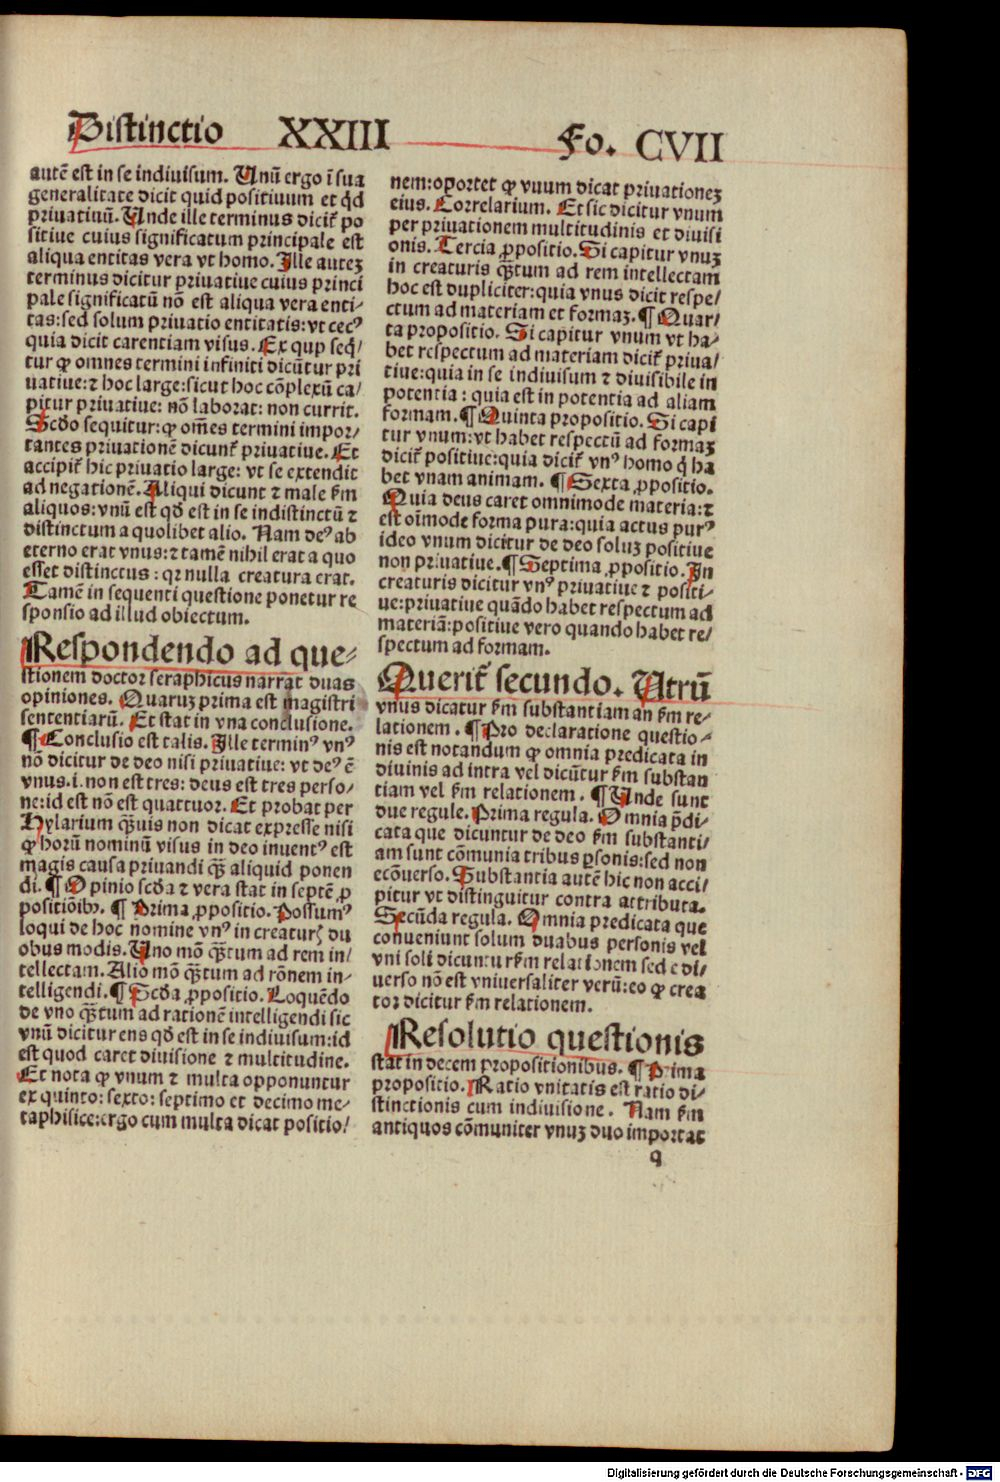 Distinctio XXIII Fo. CVII
autē est in se indiuisum. Unū ergo ī sua
generalitate dicit quid positiuum et qđ
priuatiuū. Unde ille terminus dicit᷑ po
sitiue cuius significatum principale est
aliqua entitas vera vt homo. Ille autez
terminus dicitur priuatiue cuius princi
pale significatū nō est aliqua vera enti-
tas: sed solum priuatio entitatis: vt cecꝰ
quia dicit carentiam visus. Ex quo seq̄/
tur ꝙ omnes termini infiniti dicūtur pri
uatiue: ⁊ hoc large: sicut hoc cōplexū ca/
pitur priuatiue: nō laborat: non currit.
Scd̄o sequitur: ꝙ om̄es termini impor/
tantes priuationē dicunt᷑ priuatiue. Et
accipit᷑ hic priuatio large: vt se extendit
ad negationē. Aliqui dicunt ⁊ male s̄m
aliquos: vnū est qd̄ est in se indistinctū ⁊
distinctum a quolibet alio. Nam deꝰ ab
eterno erat vnus: ⁊ tamē nihil erat a quo
esset distinctus: qꝛ nulla creatura erat.
Tamē in sequenti questione ponetur re
sponsio ad illud obiectum.
Respondendo ad que-
stionem doctor seraphicus narrat duas
opiniones. Quaruz prima est magistri
sententiarū. Et stat in vna conclusione.
¶ Conclusio est talis. Ille terminꝰ vnꝰ
nō dicitur de deo nisi priuatiue: vt deꝰ ē
vnus .i. non est tres: deus est tres perso/
ne: id est nō est quattuor. Et probat per
Hylarium q̄uis non dicat expresse nisi
ꝙ horū nominū visus in deo inuentꝰ est
magis causa priuandi q̄ aliquid ponen
di. ¶ Opinio scd̄a ⁊ vera stat in septē ꝓ
positiōibꝫ. ¶ Prima ꝓpositio. Possumꝰ
loqui de hoc nomine vnꝰ in creaturꝭ du
obus modis. Uno mō q̄tum ad rem in/
tellectam. Alio mō q̄tum ad rōnem in-
telligendi. ¶ Scd̄a ꝓpositio. Loquēdo
de vno q̄tum ad rationē intelligendi sic
vnū dicitur ens qd̄ est in se indiuisum: id
est quod caret diuisione ⁊ multitudine.
Et nota ꝙ vnum ⁊ multa opponuntur
ex quinto: sexto: septimo et decimo me-
taphisice: ergo cum multa dicat positio/
nem: oportet ꝙ vnum dicat priuationeꝫ
eius. Correlarium. Et sic dicitur vnum
per priuationem multitudinis et diuisi
onis. Tercia ꝓpositio. Si capitur vnuꝫ
in creaturis q̄tum ad rem intellectam
hoc est dupliciter: quia vnus dicit respe/
ctum ad materiam et formaꝫ. ¶ Quar/
ta propositio. Si capitur vnum vt ha-
bet respectum ad materiam dicit᷑ priua/
tiue: quia in se indiuisum ⁊ diuisibile in
potentia: quia est in potentia ad aliam
formam. ¶ Quinta propositio. Si capi
tur vnum: vt habet respectū ad formaꝫ
dicit᷑ positiue: quia dicit᷑ vnꝰ homo q̇ ha
bet vnam animam. ¶ Sexta ꝓpositio.
Quia deus caret omnimode materia: ⁊
est oīmode forma pura: quia actus purꝰ
ideo vnum dicitur de deo soluꝫ positiue
non priuatiue. ¶ Septima ꝓpositio. In
creaturis dicitur vnꝰ priuatiue ⁊ positi-
ue: priuatiue quādo habet respectum ad
materiā: positiue vero quando habet re/
spectum ad formam.
Querit᷑ secundo. Utrū
vnus dicatur s̄m substantiam an s̄m re-
lationem. ¶ Pro declaratione questio-
nis est notandum ꝙ omnia predicata in
diuinis ad intra vel dicūtur s̄m substan
tiam vel s̄m relationem. ¶ Unde sunt
due regule. Prima regula. Omnia p̄di-
cata que dicuntur de deo s̄m substanti-
am sunt cōmunia tribus ꝑsonis: sed non
ecōuerso. Substantia autē hic non acci/
pitur vt distinguitur contra attributa.
Secūda regula. Omnia predicata que
conueniunt solum duabus personis vel
vni soli dicuntur s̄m relationem sed e di/
uerso nō est vniuersaliter verū: eo ꝙ crea
tor dicitur s̄m relationem.
Resolutio questionis
stat in decem propositionibus. ¶ Prima
propositio. Ratio vnitatis est ratio di-
stinctionis cum indiuisione. Nam s̄m
antiquos cōmuniter vnuꝫ duo importat
q
Digitalisierung gefördert durch die Deutsche Forschungsgemeinschaft - DFG